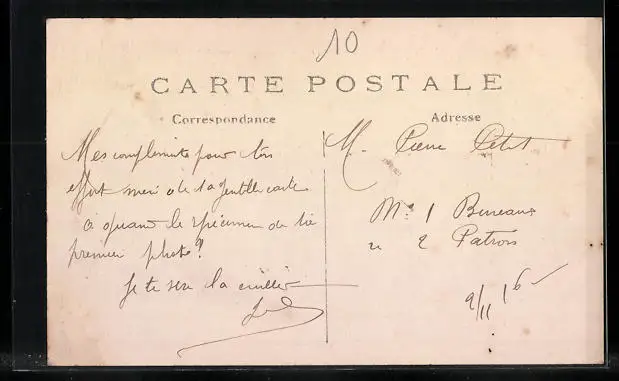 10
CARTE POSTALE
Correspondance
Mes compliments pour ton
effort merci de ta gentille carte
à quand le spécimen de ta
premier photo?
Je te serre la cuiller
Adresse
M. Pierre Petit
Bureaux
2 Patrons
9/11 16